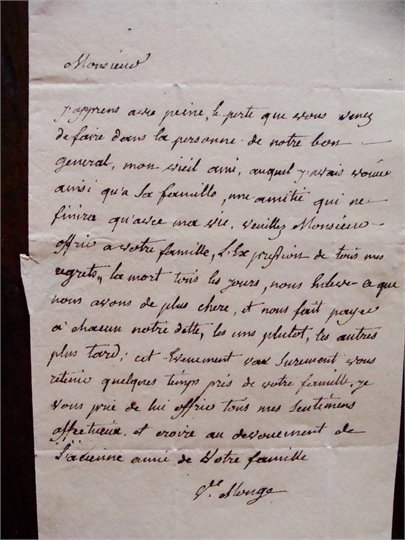 Monsieur
j'apprens avec peine, la perte que vous venez
de faire dans la personne de notre bon
general, mon vieil ami, auquel j'avais vouér
ainsi qu'a sa famille, une amitié qui ne
finira qu'avec ma vie. veuillez Monsieur
offrir a votre famille, L'Expression de tous mes
regrets, la mort tous les jours, nous Enleve ce que
nous avons de plus chere, et nous fait payer
a chacun notre dette, les uns plutot, les autres
plus tard; cet Evenement vax surement vous
retenir quelques temps près de votre famille. je
vous prie de lui offrir tous mes sentimens
affectueux. et croire au devouement de
L'acienne amie de Votre famille
Monge